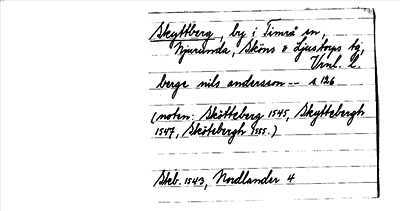 Skyttberg, by i Timrå sn,
Njurunda, Sköns & Ljustorps tg,
Vrnl. 2.
berge nils andersson -- s 126
(noten: Skötteberg 1545, Skyttebergh
1547, Skötebergh 1555.)
Skb. 1543, Nordlander 4